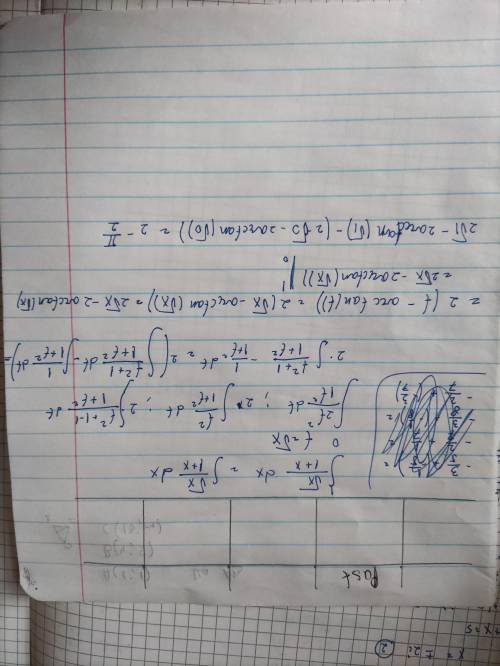 Past
∫₀¹ √x/(1+x) dx = ∫ √x/(1+x) dx
t=√x
∫ 2t²/(1+t²) dt ; 2∫ t²/(1+t²) dt ; 2∫ (t²+1-1)/(1+t²) dt
2·∫ (t²+1)/(1+t²) - 1/(1+t²) dt = 2(∫ (t²+1)/(1+t²) dt - ∫ 1/(1+t²) dt) =
= 2 (t - arctan(t)) = 2(√x - arctan(√x)) = 2√x - 2arctan(√x)
= 2√x - 2arctan(√x)) |₀¹
2√1 - 2arctan(√1) - (2√0 - 2arctan(√0)) = 2 - π/2
x = ± 2i ②
x=5